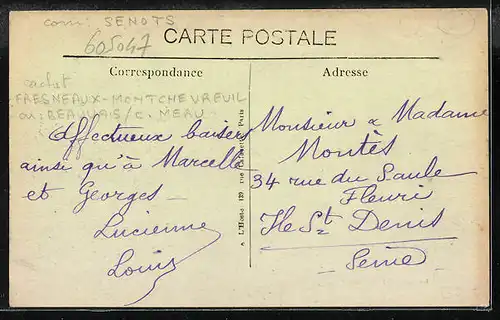 com: SENOTS
605047
CARTE POSTALE
Correspondance
Adresse
cachet
FRESNEAUX-MONTCHEVREUIL
ou BEAUVAIS/C. MEAU
Affectueux baisers
ainsi qu'à Marcelle
et Georges —
Lucienne
Louis
A L'Hoste 139 rue Paris
Monsieur & Madame
Montès
34 rue du Saule
Fleuri
Ile St Denis
- Seine -